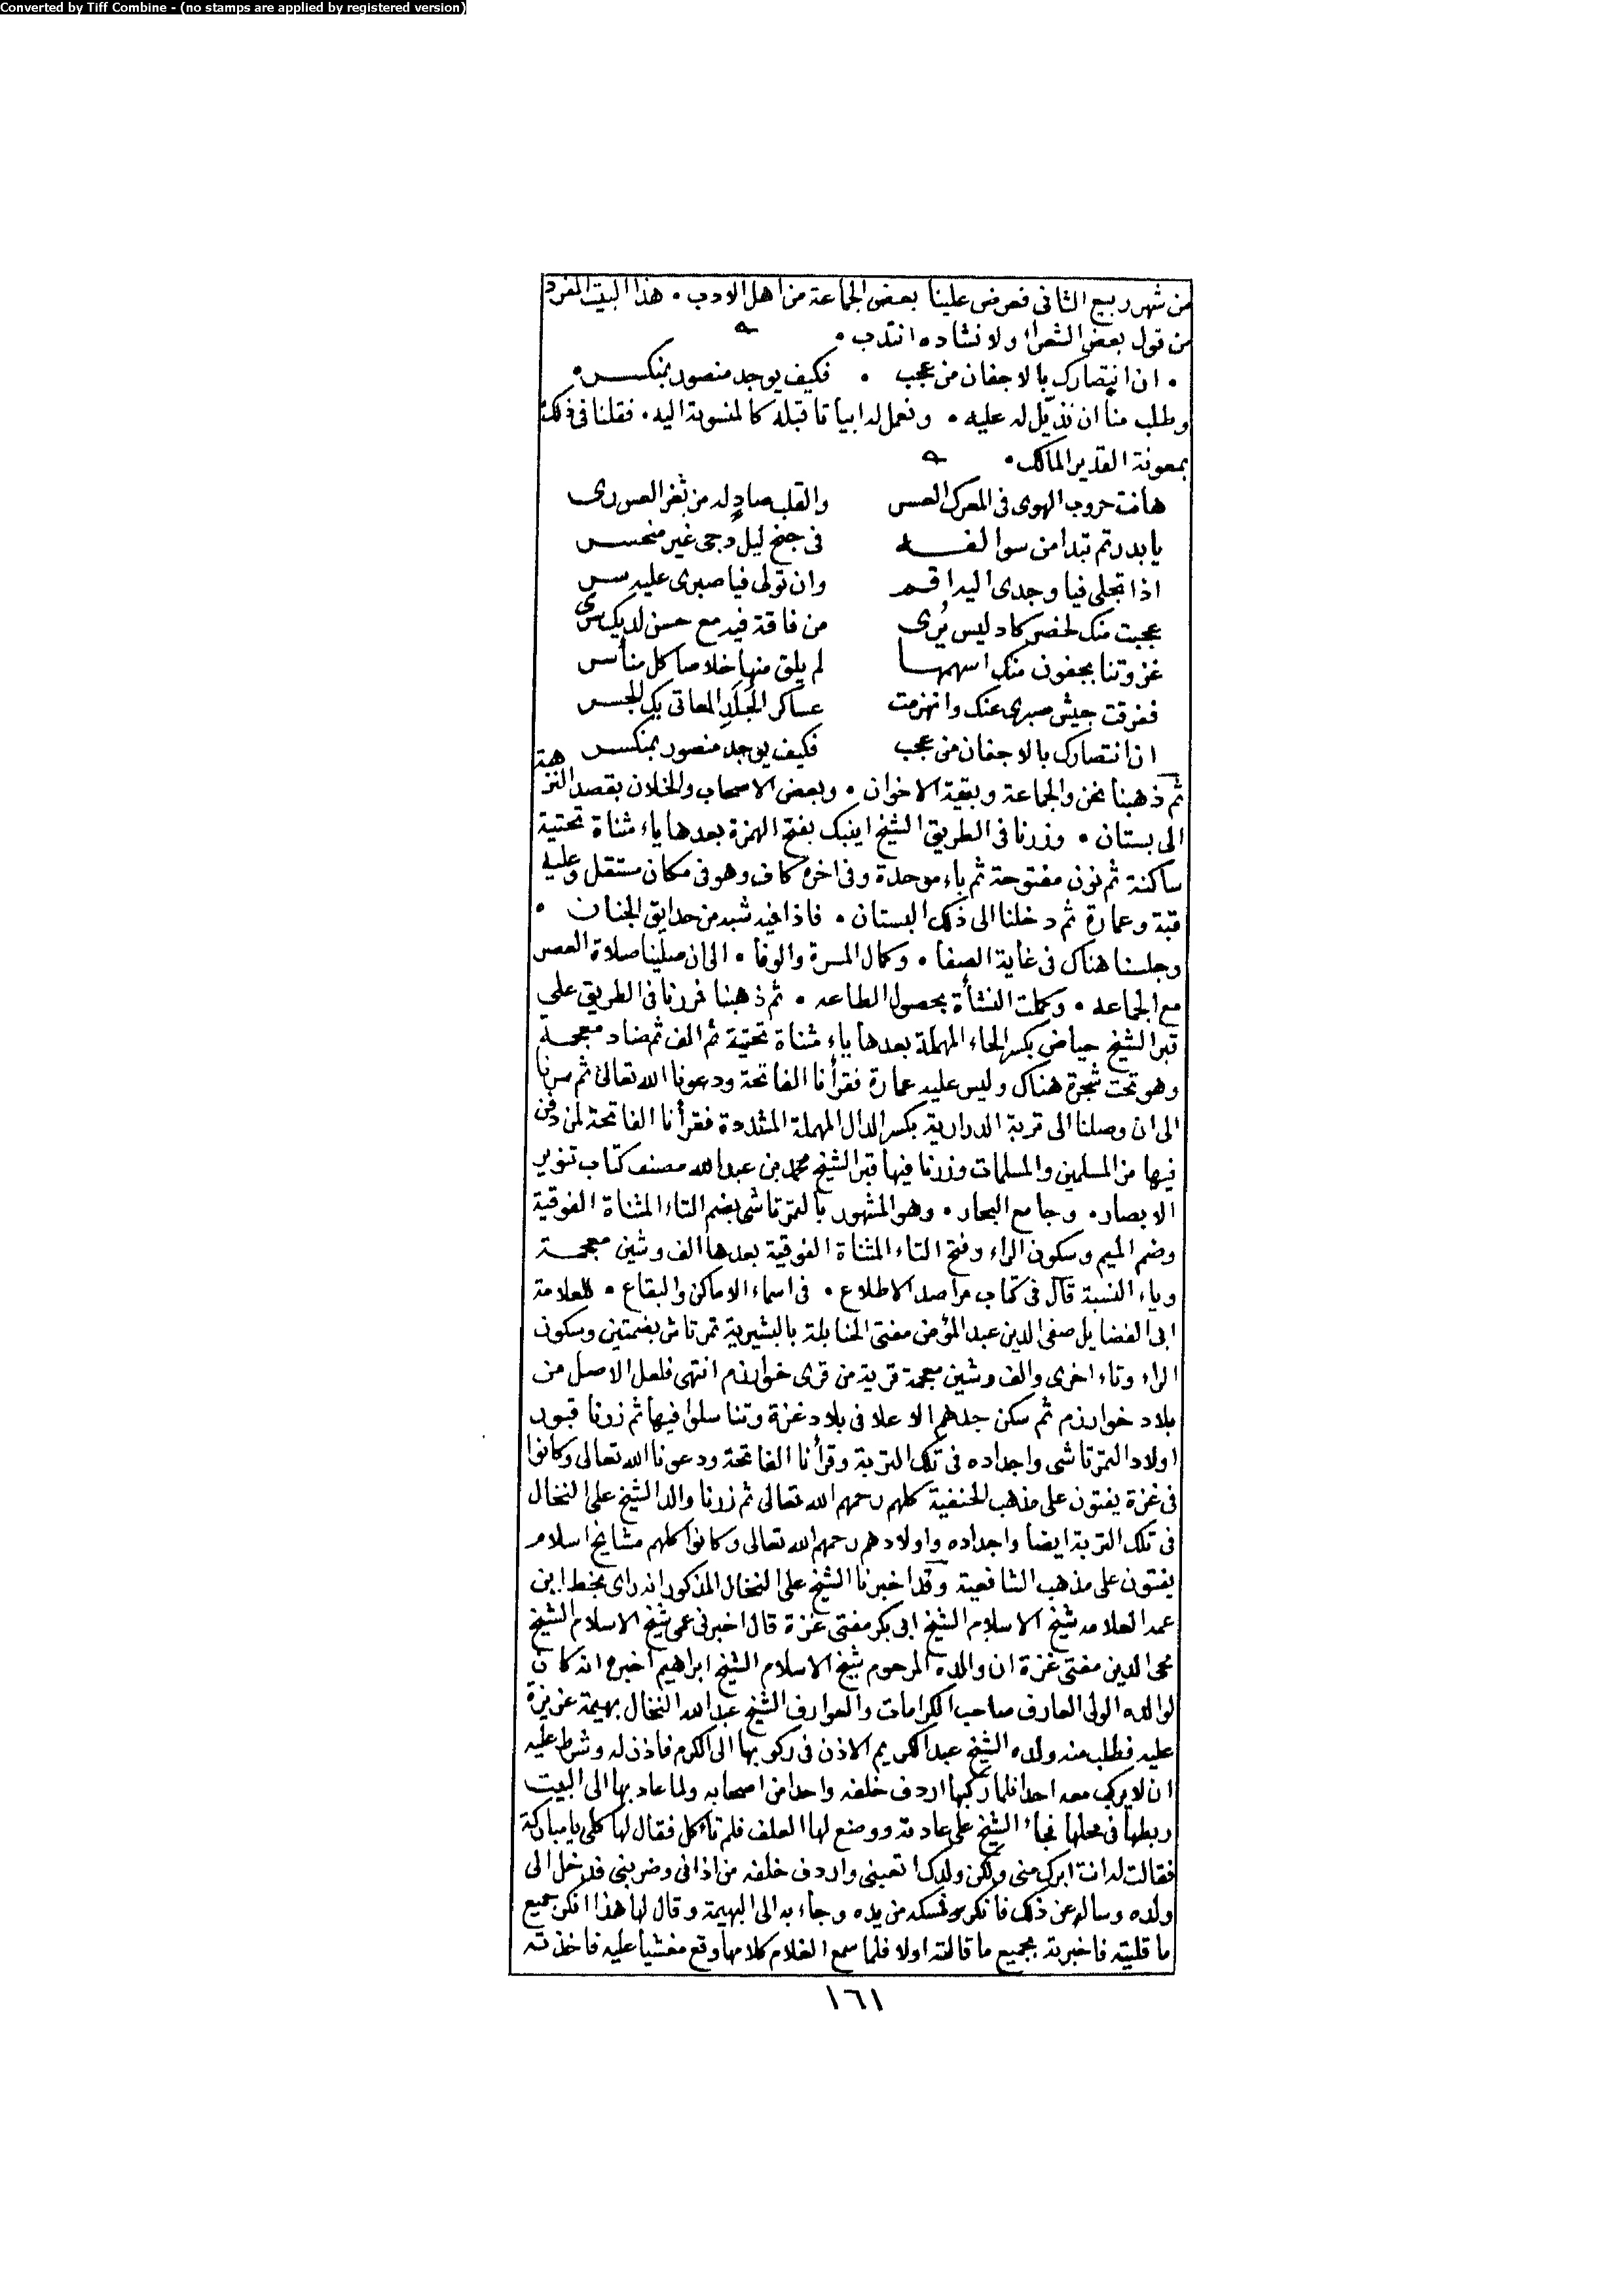 Converted by Tiff Combine - (no stamps are applied by registered version)
من شهر ربيع الثانى فعرض علينا بعض الجماعة من اهل الادب • هذا البيت المفرد
من قول بعض الشعرا ولانشاده انتدب •
• ان انتصارك بالاجفان من عجب • فكيف يوجد منصور بمنكسر •
وطلب منا ان نذيّل له عليه • ونعمل له ابياتا قبله كالمنسوبة اليه • فقلنا فى ذلك
بمعونة القدير المالك •
هانت حروب الهوى فى المعرك العسر والقلب صادٍ له من ثغر العسرى
يا بدر تم تبدا من سوالفه فى جنح ليل دجى غير منحسر
اذا تجلى فيا وجدى اليه اقم وان تولى فيا صبرى عليه سر
عجبت منك لخصر كاد ليس يُرى من فاقة فيه مع حسن لديك سرى
غزوتنا بجفون منك اسهمها لم يلق منها خلاصا كل مناسر
ففرقت جيش صبرى عنك وانهزمت عساكر الجَلَدِ المعاتى بكل الجسر
ان انتصارك بالاجفان من عجب فكيف يوجد منصور بمنكسر
ثم ذهبنا نحن والجماعة وبقية الاخوان • وبعض الاصحاب والخلان بقصد النزهة
الى بستان • وزرنا فى الطريق الشيخ اينبك بفتح الهمزة بعدها ياء مثناة تحتية
ساكنة ثم نون مفتوحة ثم باء موحدة وفى اخره كاف وهو فى مكان مستقل وعليه
قبة وعمارة ثم دخلنا الى ذلك البستان • فاذا فيه شبه من حدايق الجنان •
وجلسنا هناك فى غاية الصفا • وكمال المسرة والوفا • الى ان صلينا صلاة العصر
مع الجماعه • وكملت النشأة بحصول الطاعه • ثم ذهبنا فزرنا فى الطريق على
قبر الشيخ حياض بكسر الحاء المهملة بعدها ياء مثناة تحتية ثم الف ثم ضاد معجمة
وهو تحت شجرة هناك وليس عليه عمارة فقرأنا الفاتحة ودعونا الله تعالى ثم سرنا
الى ان وصلنا الى تربة الدرارية بكسر الدال المهملة المشددة فقرأنا الفاتحة لمن دفن
فيها من المسلمين والمسلمات وزرنا فيها قبر الشيخ محمد بن عبد الله مصنف كتاب تنوير
الابصار • وجامع البحار • وهو المشهور بالتمرتاشى بضم التاء المثناة الفوقية
وضم الميم وسكون الراء وفتح التاء المثناة الفوقية بعدها الف وشين معجمة
وياء النسبة قال فى كتاب مراصد الاطلاع • فى اسماء الاماكن والبقاع • للعلامة
ابى الفضايل صفى الدين عبد المؤمن مفتى الحنابلة بالبشيرية تمرتاش بضمتين وسكون
الراء وتاء اخرى والف وشين معجمة قرية من قرى خوارزم انتهى فلعل الاصل من
بلاد خوارزم ثم سكن جدهم الاعلا فى بلاد غزة وتناسلوا فيها ثم زرنا قبور
اولاد التمرتاشى واجداده فى تلك التربة وقرأنا الفاتحة ودعونا الله تعالى وكانوا
فى غزة يفتون على مذهب الحنفية كلهم رحمهم الله تعالى ثم زرنا والد الشيخ على النخال
فى تلك التربة ايضا واجداده واولادهم رحمهم الله تعالى وكانوا كلهم مشايخ اسلام
يفتون على مذهب الشافعية وقد اخبرنا الشيخ على النخال المذكور انه راى بخط ابن
عمه العلامه شيخ الاسلام الشيخ ابى بكر مفتى غزة قال اخبرنى عمى شيخ الاسلام الشيخ
محى الدين مفتى غزة ان والده المرحوم شيخ الاسلام الشيخ ابراهيم اخبره انه كان
لوالده الولى العارف صاحب الكرامات والعوارف الشيخ عبد الله النخال بهيمة عزيزة
عليه فطلب منه ولده الشيخ عبد الكريم الاذن فى ركوبها الى الكرم فاذن له وشرط عليه
ان لا يركب معه احدا فلما ركبها اردف خلفه واحدا من اصحابه ولما عاد بها الى البيت
ربطها فى محلها فجاء الشيخ على عادته ووضع لها العلف فلم تاكل فقال لها كلى يا مباركة
فقالت له انت ابرك منى ولكن ولدك اتعبنى واردف خلفه من اذانى وضربنى فدخل الى
ولده وساله عن ذلك فانكر فمسكه من يده وجاء به الى البهيمة وقال لها هذا انكر جميع
ما قلتيه فاخبرته بجميع ما قالته اولا فلما سمع الغلام كلامها وقع مغشيا عليه فاخذته
١٦١